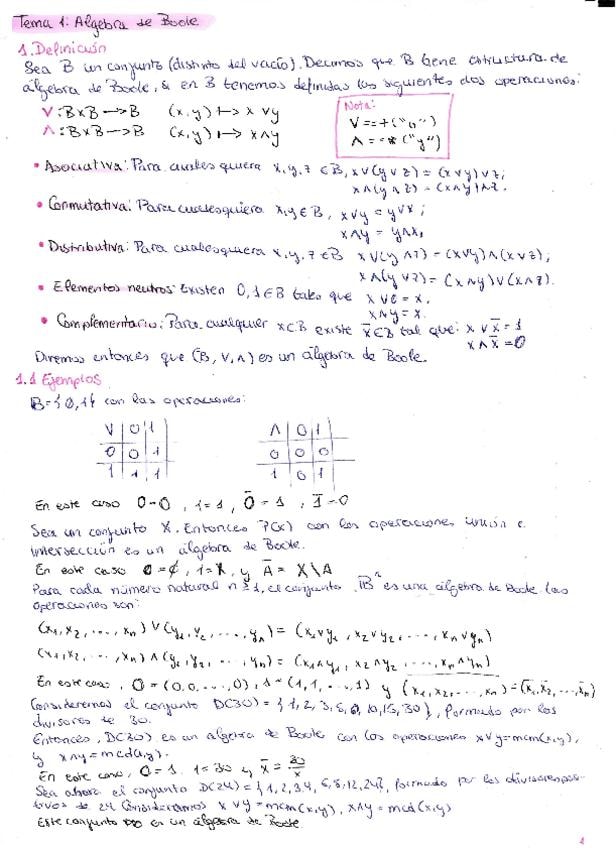 Tema 1: Álgebra de Boole
1. Definición
Sea B un conjunto (distinto del vacío). Decimos que B tiene estructura de
álgebra de Boole, si en B tenemos definidas las siguientes dos operaciones:
V: B×B → B (x,y) ↦ x∨y
Λ: B×B → B (x,y) ↦ x∧y
Nota:
V == + ("o")
Λ == * ("y")
• Asociativa: Para cualesquiera x,y,z ∈B, x∨(y∨z) = (x∨y)∨z;
x∧(y∧z) = (x∧y)∧z.
• Conmutativa: Para cualesquiera x,y∈B, x∨y = y∨x;
x∧y = y∧x,
• Distributiva: Para cualesquiera x,y,z ∈B x∨(y∧z) = (x∨y)∧(x∨z);
x∧(y∨z) = (x∧y)∨(x∧z).
• Elementos neutros: Existen 0,1∈B tales que x∨0 = x.
x∧y = x.
• Complementario: Para cualquier x∈B existe x̄∈B tal que: x∨x̄ = 1
x∧x̄ = 0
Diremos entonces que (B, V, Λ) es un álgebra de Boole.
1.1 Ejemplos
B={0,1} con las operaciones:
V 0 1
0 0 1
1 1 1
Λ 0 1
0 0 0
1 0 1
En este caso 0=0, 1=1, 0̄=1, 1̄=0
Sea un conjunto X. Entonces P(x) con las operaciones unión e
intersección es un álgebra de Boole.
En este caso 0=∅, 1=X, y Ā = X\A
Para cada número natural n≥1, el conjunto Bⁿ es una álgebra de Boole. Las
operaciones son:
(x₁,x₂,...,xₙ)∨(y₁,y₂,...,yₙ) = (x₁∨y₁, x₂∨y₂,...,xₙ∨yₙ)
(x₁,x₂,...,xₙ)∧(y₁,y₂,...,yₙ) = (x₁∧y₁, x₂∧y₂,...,xₙ∧yₙ)
En este caso, 0=(0,0,...,0), 1=(1,1,...,1) y \overline{(x₁,x₂,...,xₙ)} = (x̄₁,x̄₂,...,x̄ₙ)
Consideremos el conjunto D(30) = {1,2,3,5,6,10,15,30}, formado por los
divisores de 30.
Entonces, D(30) es un álgebra de Boole con las operaciones x∨y=mcm(x,y),
y x∧y=mcd(x,y).
En este caso, 0=1. 1=30 y x̄ = 30/x
Sea ahora el conjunto D(24)={1,2,3,4,6,8,12,24}, formado por los divisores posi-
tivos de 24. Consideramos x∨y=mcm(x,y), x∧y=mcd(x,y)
Este conjunto no es un álgebra de Boole.
1